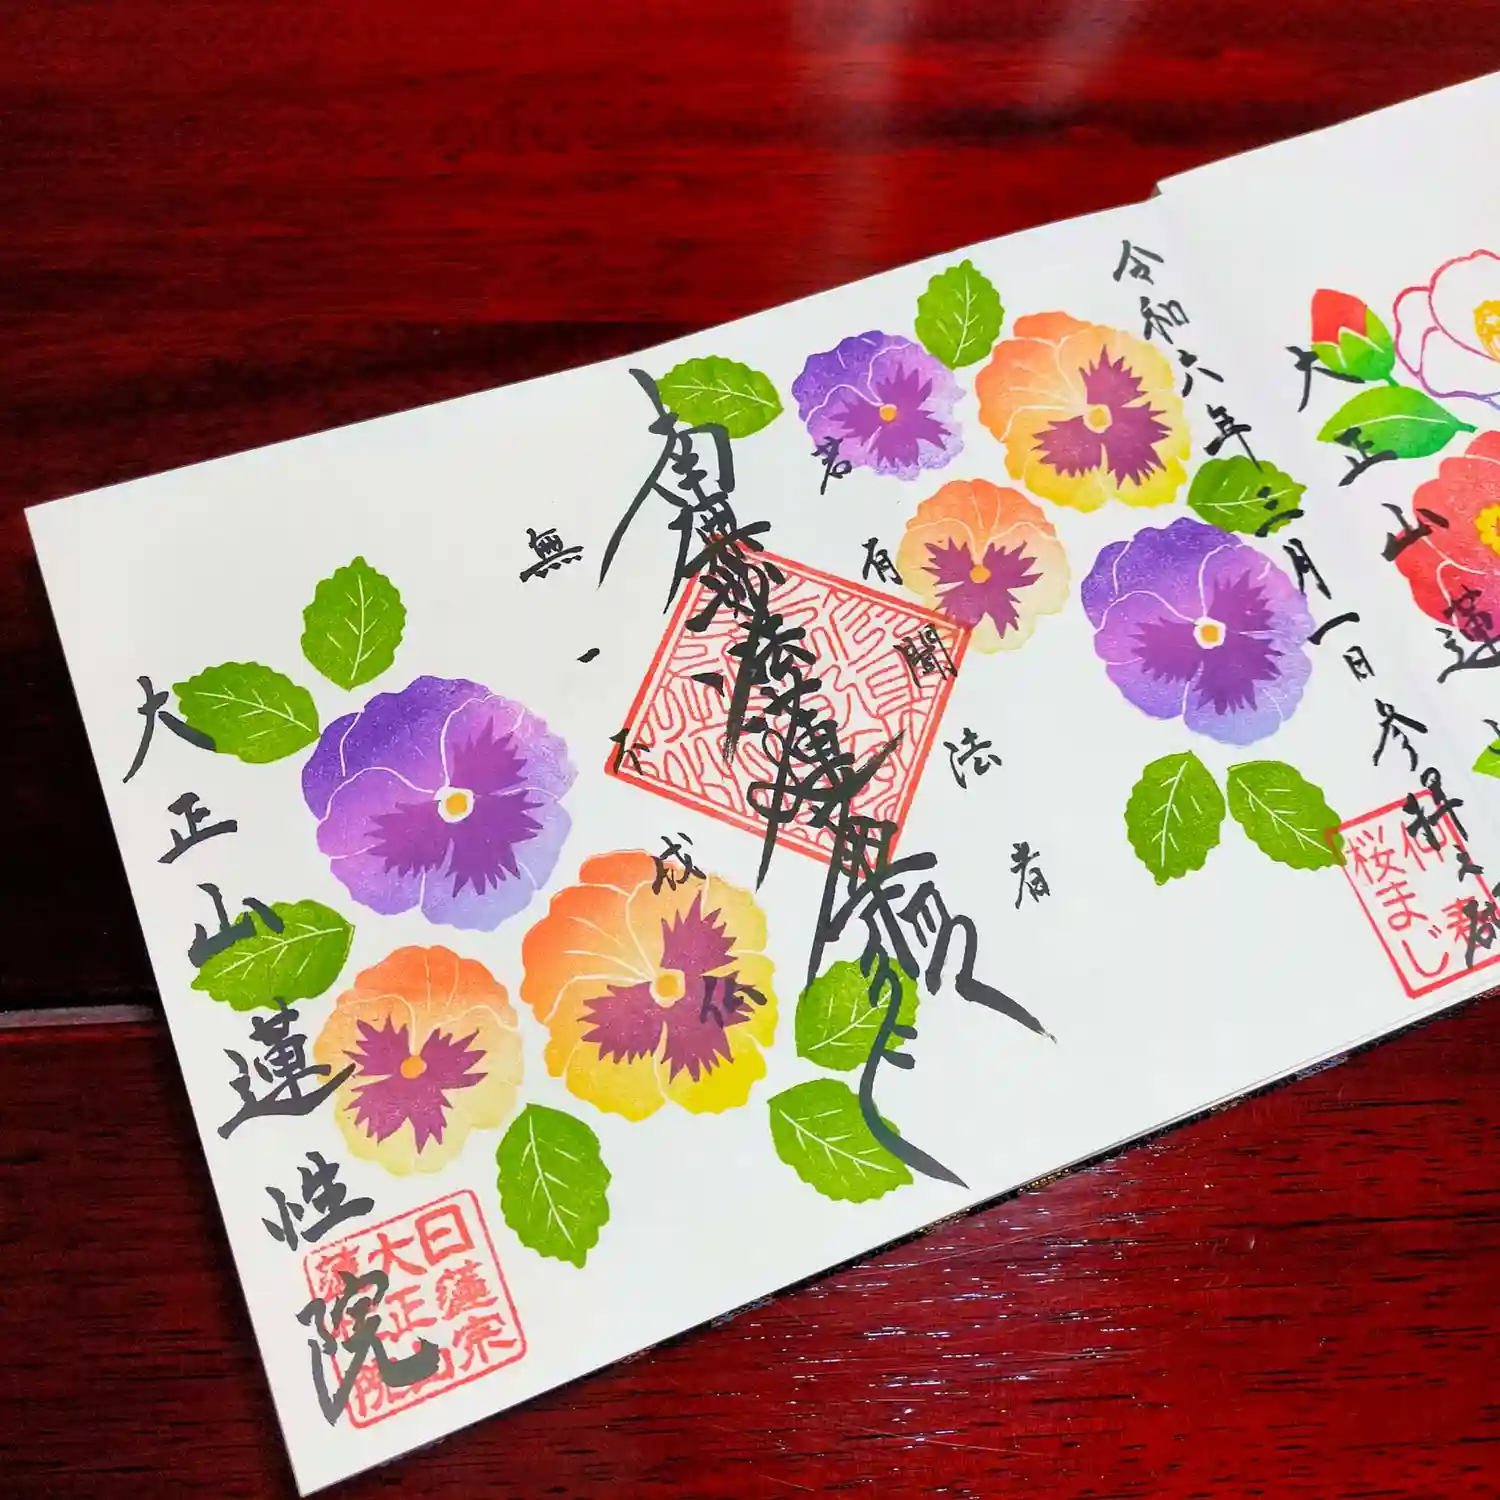 大正山蓮
令和六年三月一日参拝
桜まじ
若有聞法者
南無妙法蓮華経
無一不成仏
大正山蓮性院
日蓮宗
大正山